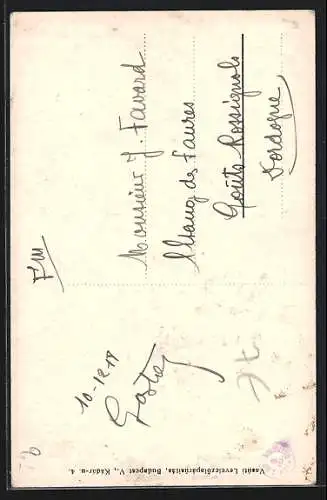 FM
Monsieur J. Favard
Etang des Faures
Goûts-Rossignols
Dordogne
10-12-18
Gaston
Vasúti Levelezőlapárúsítás, Budapest V., Kádár-u. 4.